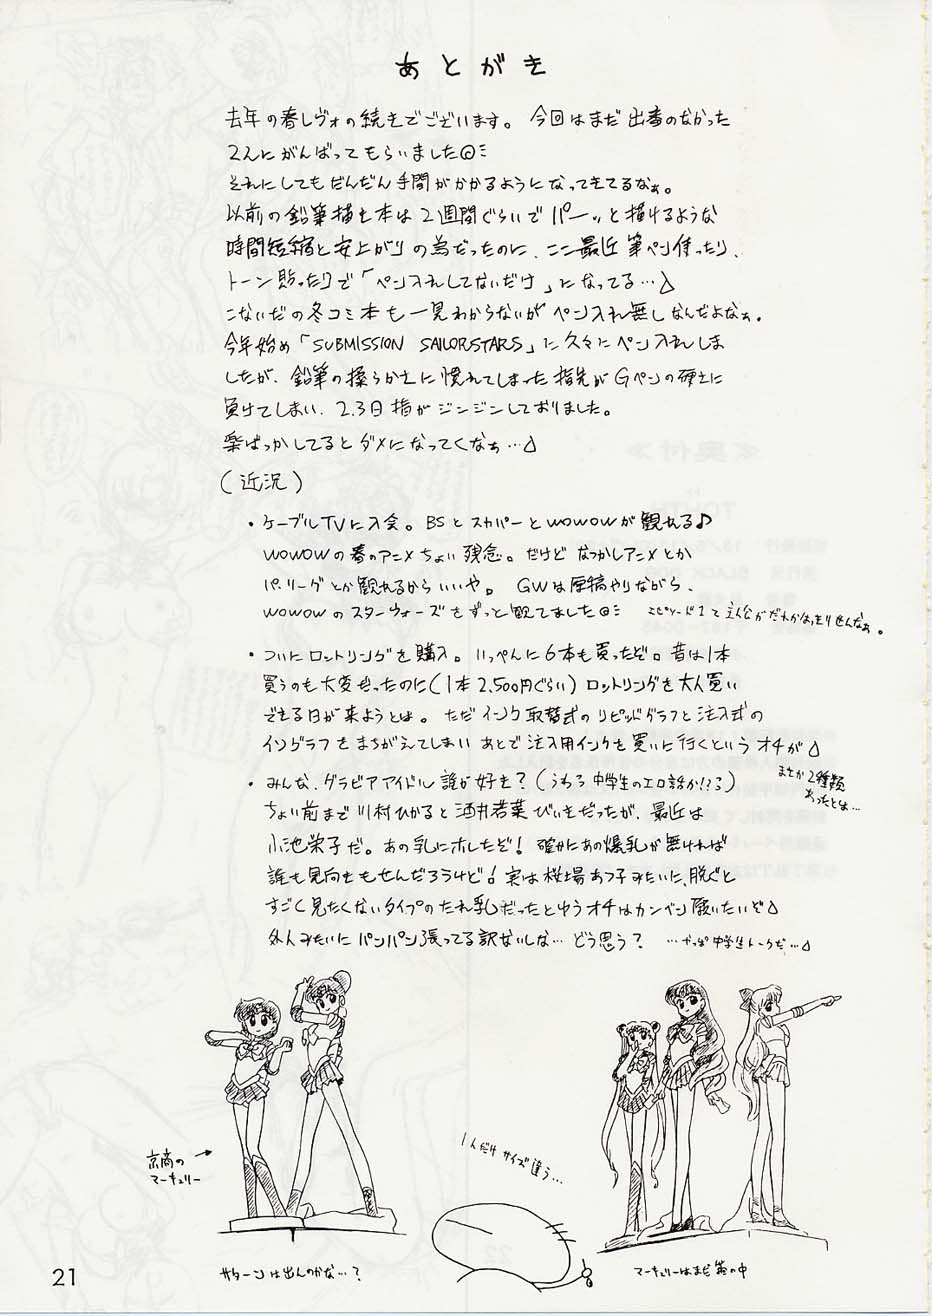 あとがき
去年の春レヴォの続きでございます。今回はまだ出番のなかった
2人にがんばってもらいました◎ミ
それにしてもだんだん手間がかかるようになってきてるなぁ。
以前の鉛筆描き本は2週間ぐらいでパーッと描けるような
時間短縮と安上がりの為だったのに、ここ最近筆ペン使ったり、
トーン貼ったりで「ペン入れしてないだけ」になってる…△
こないだの冬コミ本も一見わからないがペン入れ無しなんだよなぁ。
今年始め「SUBMISSION SAILORSTARS」に久々にペン入れしま
したが、鉛筆の柔らかさに慣れてしまった指先がGペンの硬さに
負けてしまい、2.3日指がジンジンしておりました。
楽ばっかしてるとダメになってくなぁ…△
(近況)
・ケーブルTVに入会。BSとスカパーとWOWOWが観れる♪
WOWOWの春のアニメちょい残念。だけどなつかしアニメとか
パ・リーグとか観れるからいいや。GWは原稿やりながら、
WOWOWのスターウォーズをずっと観てました◎ミ エピソード1て主人公がだれかはっきりせんなぁ。
・ついにロットリングを購入。いっぺんに6本も買ったぞ。昔は1本
買うのも大変だったのに(1本2,500円ぐらい)ロットリングを大人買い
できる日が来ようとは。ただインク取替式のラピッドグラフと注入式の
イソグラフをまちがえてしまいあとで注入用インクを買いに行くというオチが△
まさか2種類
あったとは…
・みんな、グラビアアイドル誰が好き?(うわっ中学生のエロ話か!?る)
ちょい前まで川村ひかると酒井若菜びいきだったが、最近は
小池栄子だ。あの乳にホレたぞ!確かにあの爆乳が無ければ
誰も見向きもせんだろうけど!実は桜場あつ子みたいに、脱ぐと
すごく見たくないタイプのたれ乳だったとゆうオチはカンベン願いたいぞ△
外人みたいにパンパン張ってる訳ないしな…どう思う? …やっぱ中学生トークだ…△
京商の
マーキュリー
1人だけサイズ違う…
サターンは出んのかな…?
マーキュリーはまだ箱の中
21